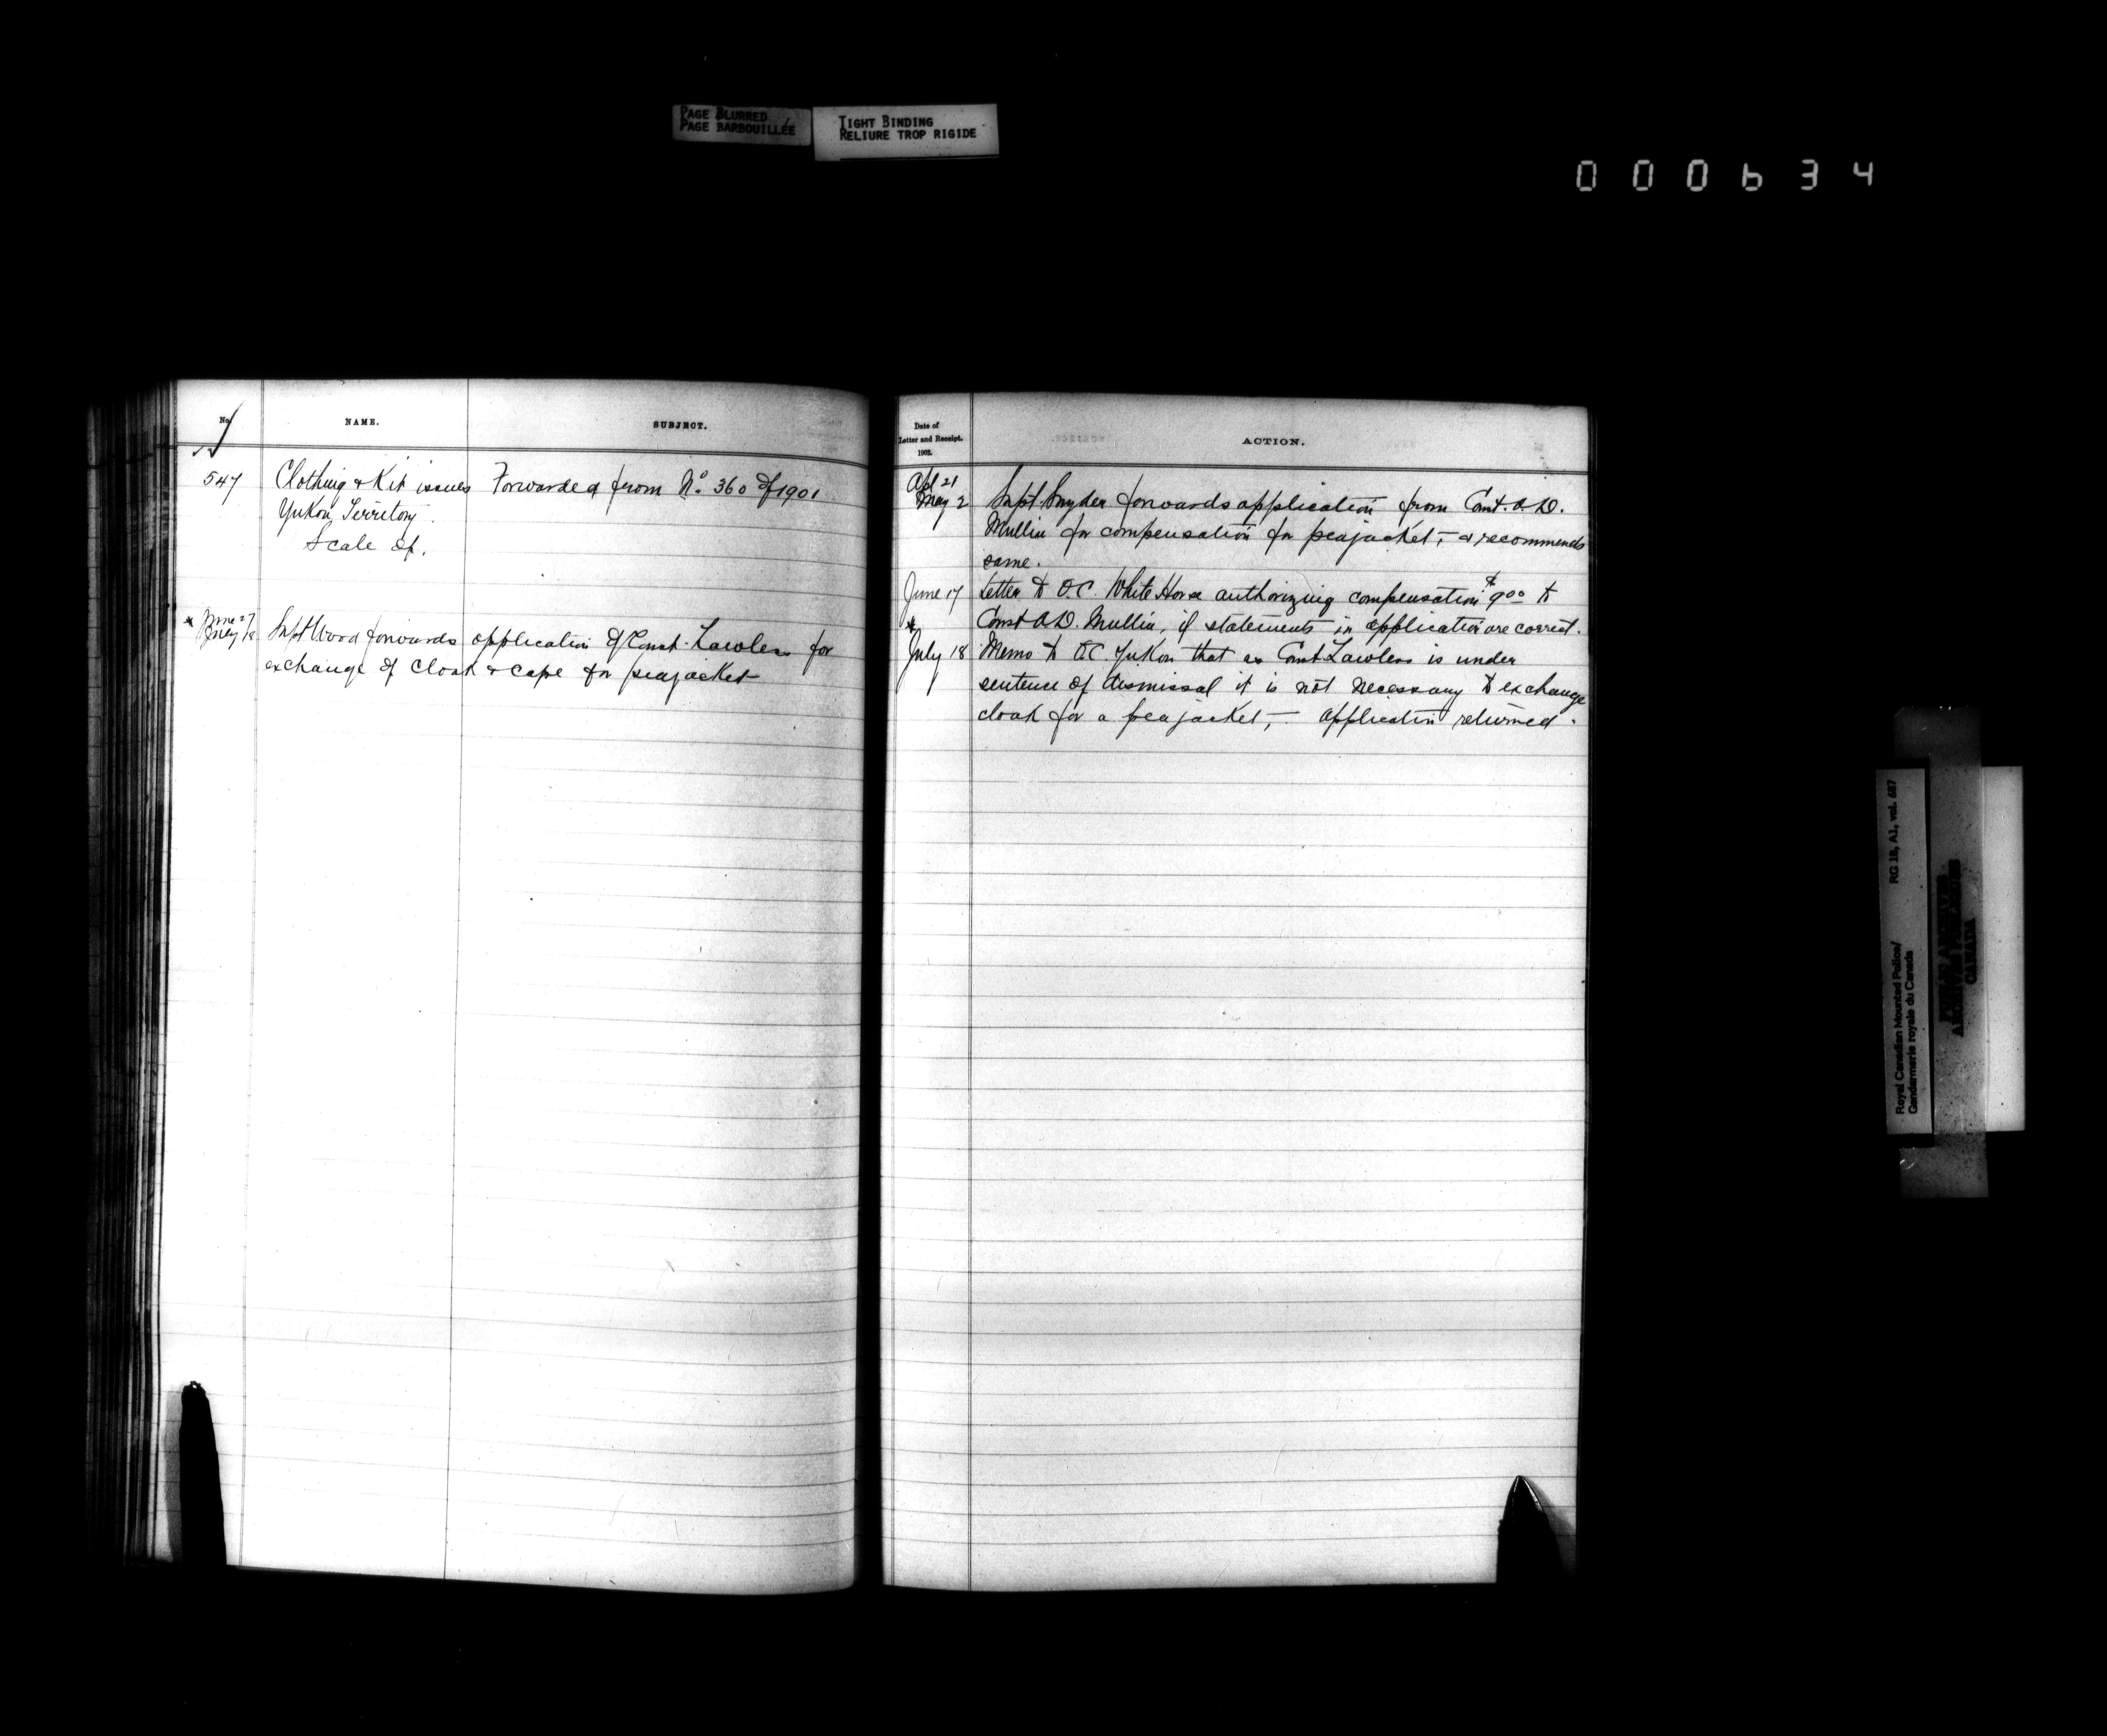 PAGE BLURRED
PAGE BARBOUILLÉE
TIGHT BINDING
RELIURE TROP RIGIDE
000634
No.
NAME.
SUBJECT.
547
Clothing & Kit issues
Forwarded from No. 360 of 1901
Yukon Territory.
Scale of.
* June 27
May 18
Supt Wood forwards application of Const. Lawless for
exchange of cloak & cape for peajacket
Date of
Letter and Receipt.
1902.
ACTION.
Apl 21
May 2
Supt Snyder forwards application from Const. A.D.
Mullin for compensation for peajacket, - & recommends
same.
June 17
Letter to O.C. White Horse authorizing compensation $9.00 to
Const A.D. Mullin, if statements in application are correct.
*
July 18
Memo to O.C. Yukon that as Const Lawless is under
sentence of dismissal it is not necessary to exchange
cloak for a peajacket, - application returned.
Royal Canadian Mounted Police/
Gendarmerie royale du Canada
RG 18, A1, vol. 687
PUBLIC ARCHIVES
ARCHIVES PUBLIQUES
CANADA